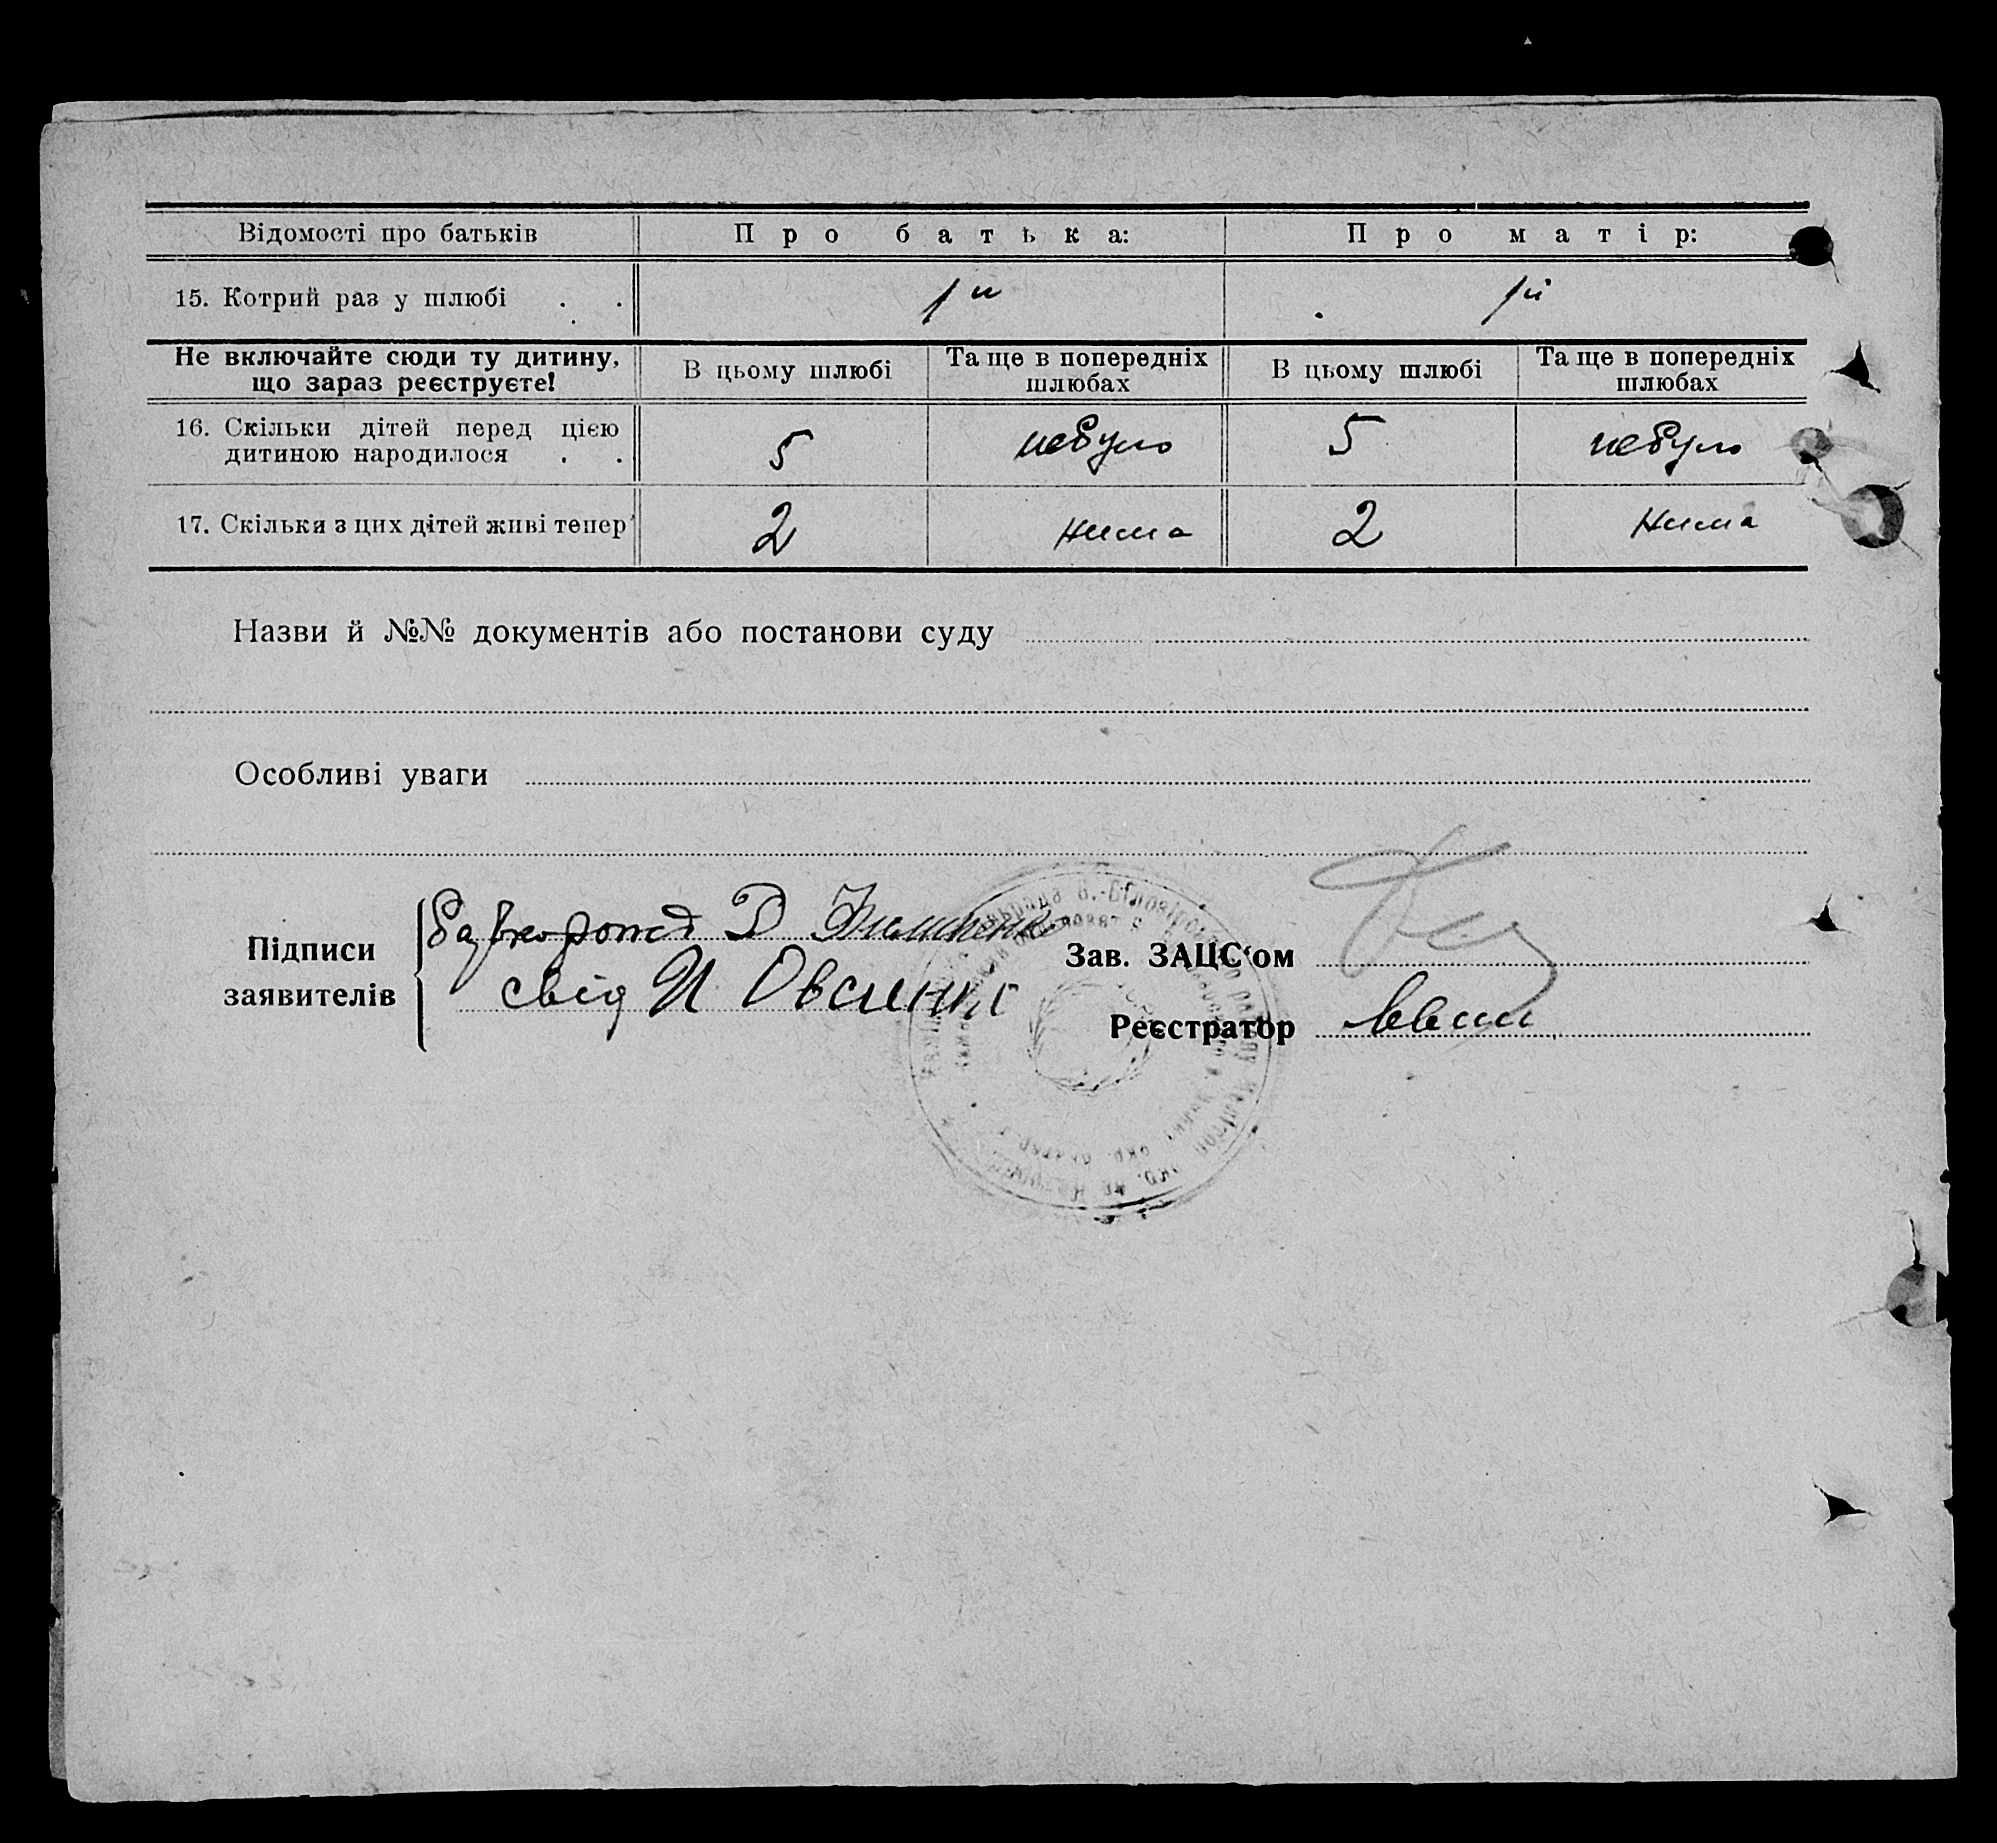 Відомості про батьків Про батька: Про матір:
15. Котрий раз у шлюбі . . 1й 1й
Не включайте сюди ту дитину, що зараз реєструєте! В цьому шлюбі Та ще в попередніх шлюбах В цьому шлюбі Та ще в попередніх шлюбах
16. Скільки дітей перед цією
дитиною народилося . . 5 небуло 5 небуло
17. Скільки з цих дітей живі тепер 2 нима 2 нима
Назви й №№ документів або постанови суду
Особливі уваги
Підписи заявителів
Д
свід И Овсиенко
Зав. ЗАЦС'ом
Реєстратор